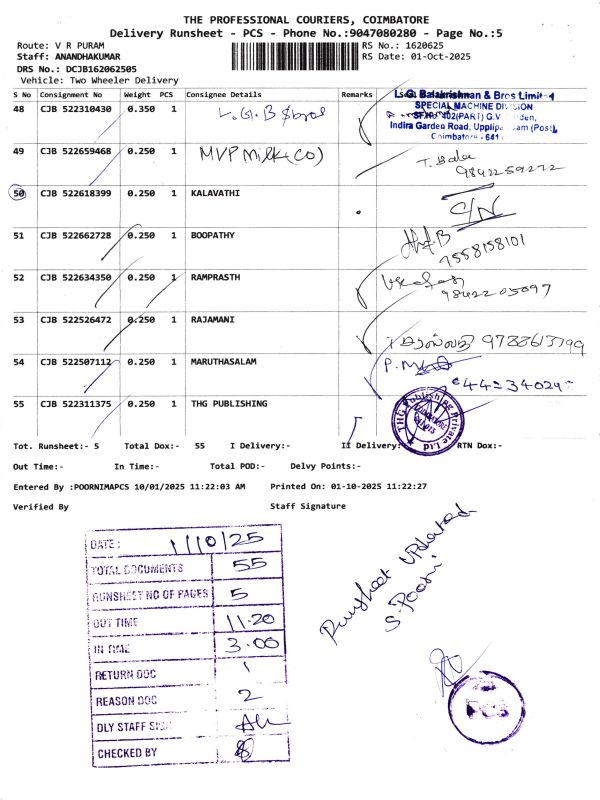 THE PROFESSIONAL COURIERS, COIMBATORE
Delivery Runsheet - PCS - Phone No.:9047080280 - Page No.:5
Route: V R PURAM RS No.: 1620625
Staff: ANANDHAKUMAR RS Date: 01-Oct-2025
DRS No.: DCJB162062505
Vehicle: Two Wheeler Delivery
S No Consignment No Weight PCS Consignee Details Remarks
L.G. Balakrishnan & Bros Limited
SPECIAL MACHINE DIVISION
Indira Garden Road, Uppilipalayam (Post),
Coimbatore - 641
48 CJB 522310430 0.350 1 L.G.B & bros
49 CJB 522659468 0.250 1 MVP Milk (CO) T. Bala
9842259272
50 CJB 522618399 0.250 1 KALAVATHI C/N
51 CJB 522662728 0.250 1 BOOPATHY
7558158101
52 CJB 522634350 0.250 1 RAMPRASTH
9842205097
53 CJB 522526472 0.250 1 RAJAMANI 9788613799
54 CJB 522507112 0.250 1 MARUTHASALAM P.
55 CJB 522311375 0.250 1 THG PUBLISHING
THG Publishing Private Ltd
Tot. Runsheet:- 5 Total Dox:- 55 I Delivery:- II Delivery: RTN Dox:-
Out Time:- In Time:- Total POD:- Delvy Points:-
Entered By :POORNIMAPCS 10/01/2025 11:22:03 AM Printed On: 01-10-2025 11:22:27
Verified By Staff Signature
DATE : 1/10/25
TOTAL DOCUMENTS 55
RUNSHEET NO OF PAGES 5
OUT TIME 11.20
IN TIME 3.00
RETURN DOC 1
REASON DOC 2
DLY STAFF SIGN
CHECKED BY
Runsheet Updated
S. Poorni
PCS